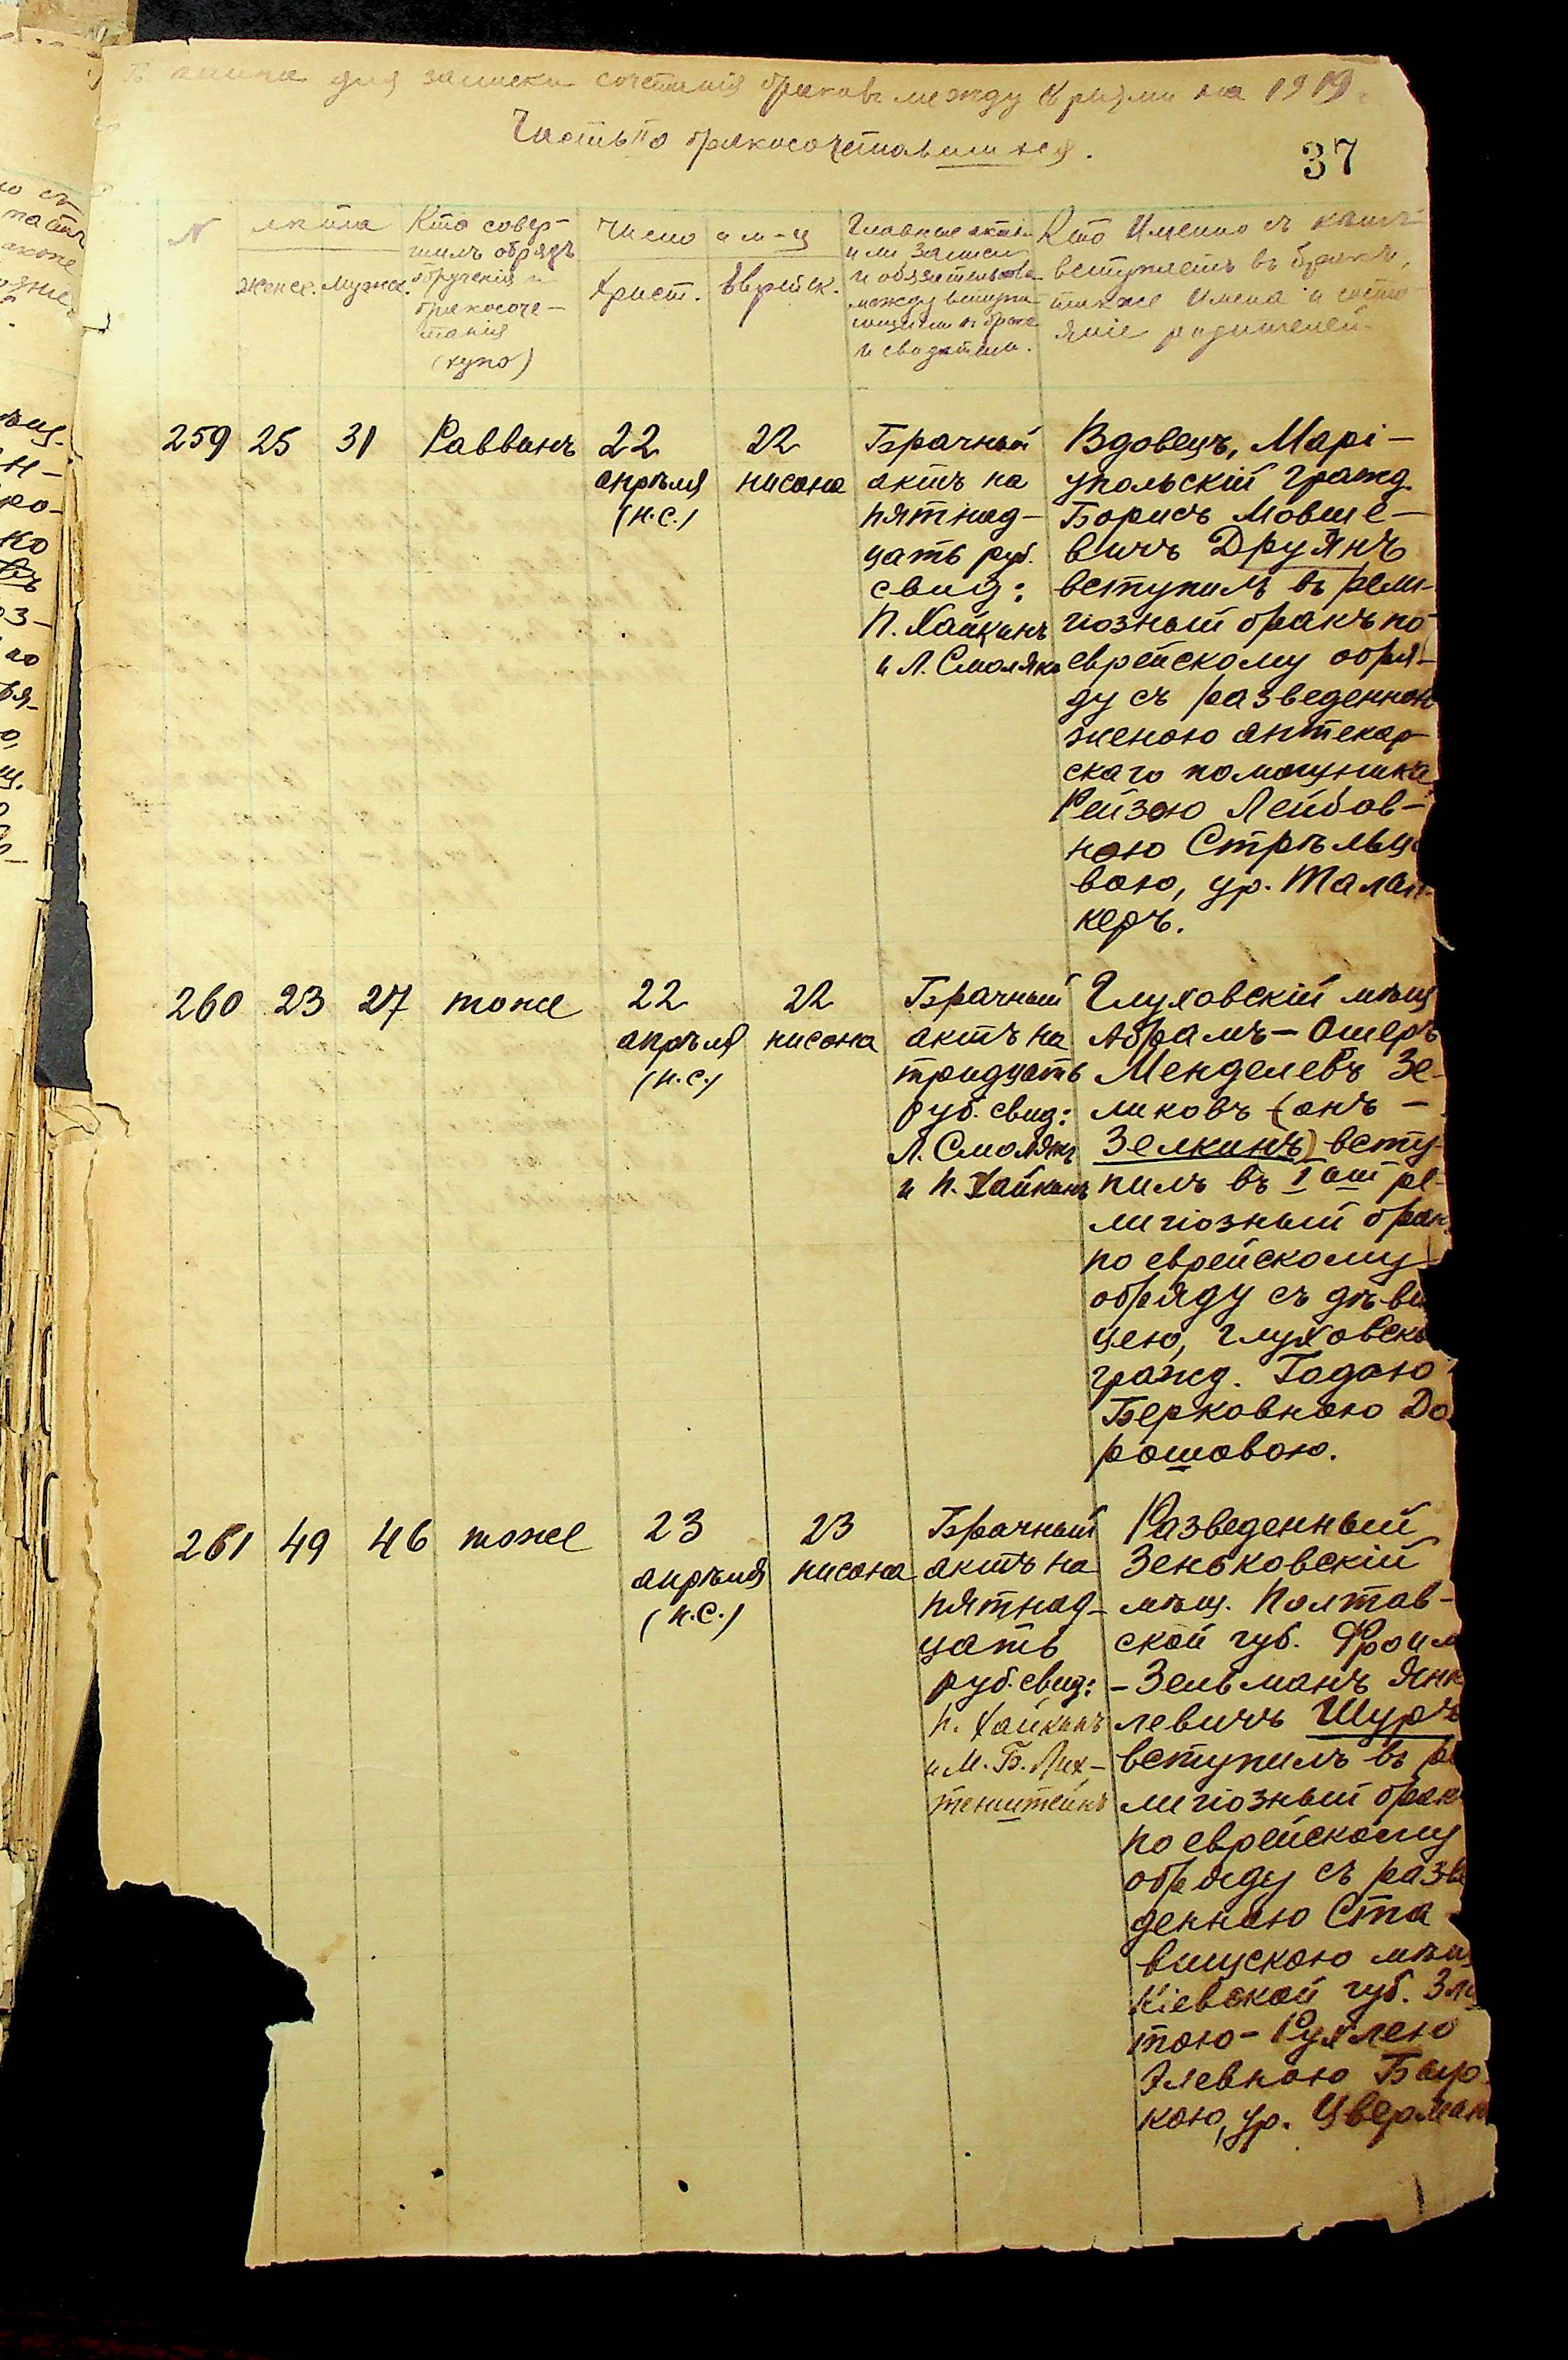 для записки сочетанія браковъ между Евреями на 1919
Часть IIо бракосочетавшихся.
37
N
лѣта
Женск. Мужск.
Кто совер-
шилъ обрядъ
обрученія и
бракосоче-
танія
(хупо)
Число и м-ц
Христ.
Еврейск.
Главные акты
или записи
и обязательства
между вступа-
ющими въ бракъ
и свидѣтели.
Кто Именно съ кѣмъ
вступаетъ въ бракъ,
также Имена и состо-
яніе родителей.
259 25 31 Раввинъ
22
апрѣля
(н.с.)
22
нисона
Брачный
актъ на
пятнад-
цать руб.
свид:
П. Хайкинъ
и Л. Смолякъ
Вдовецъ, Марі-
упольскій гражд.
Борисъ Мовше-
вичъ Друянъ
вступилъ въ рели-
гіозный бракъ по
еврейскому обря-
ду съ разведенной
женою аптекар-
скаго помощника
Рейзою Лейбов-
ною Стрѣльц
вою, ур. Талан
керъ.
260 23 27 тоже
22
апрѣля
(н.с.)
22
нисона
Брачный
актъ на
тридцать
руб. свид:
Л. Смолякъ
и П. Хайкинъ
Глуховскій мѣщ
Абрамъ-Ошеръ
Менделевъ Зе-
ликовъ (онъ-
Зелкинъ) всту-
пилъ въ Iый ре-
лигіозный брак
по еврейскому
обряду съ дѣви
цею, глуховск
гражд. Годою
Берковною До
рошовою.
261 49 46 тоже
23
апрѣля
(н.с.)
23
нисона
Брачный
актъ на
пятнад-
цать
руб. свид:
П. Хайкинъ
и М. Б. Лих-
тенштейнъ
Разведенный
Зеньковскій
мѣщ. Полтав-
ской губ. Фроим
-Зельманъ Янк
левичъ Шуръ
вступилъ въ ре
лигіозный брак
по еврейскому
обряду съ разве
денною Ста
вищскою мѣщ
Кіевской губ. Зла
тою-Рухлею
Элевною Бояр
кою, ур. Цверман